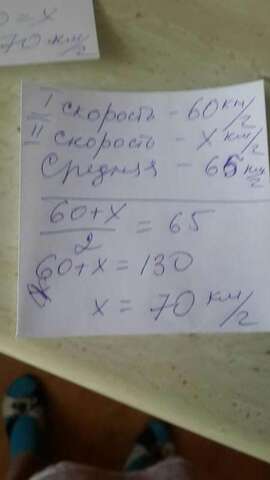 0 = x
70 км/г
I скорость - 60 км/г
II скорость - x км/г
Средняя - 65 км/г
60+x
2
= 65
60+x = 130
x = 70 км/г